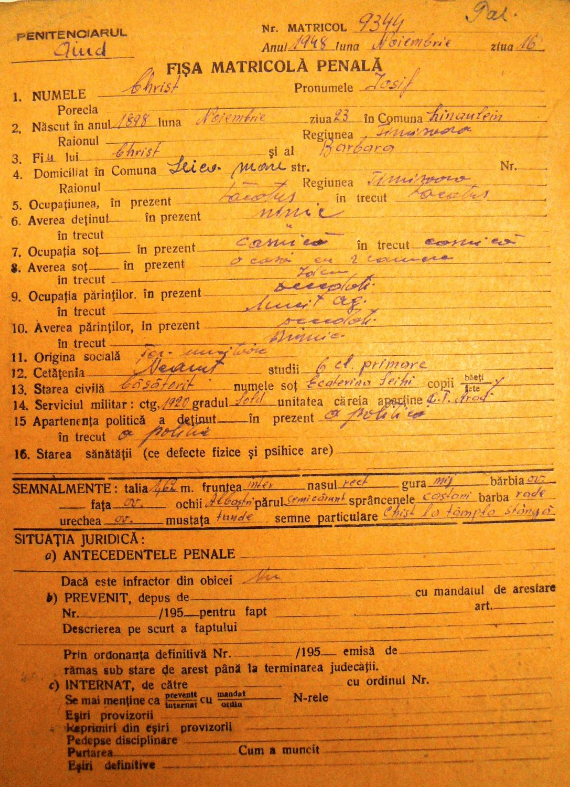 Pal.
PENITENCIARUL Nr. MATRICOL 9344
Aiud Anul 1948 luna Noiembrie ziua 16
FIŞA MATRICOLĂ PENALĂ
1. NUMELE Christ Pronumele Iosif
Porecla
2. Născut în anul 1898 luna Noiembrie ziua 23 în Comuna
Raionul Regiunea Timisoara
3. Fiu lui Christ şi al Barbara
4. Domiciliat în Comuna mare str. Nr.
Raionul Regiunea Timisoara
5. Ocupaţiunea, în prezent lăcătuş în trecut lăcătuş
6. Averea deţinut în prezent nimic
în trecut "
7. Ocupaţia soţ în prezent casnică în trecut casnică
8. Averea soţ în prezent o casă cu 2 camere
în trecut
9. Ocupaţia părinţilor, în prezent decedaţi
în trecut Muncit. ag.
10. Averea părinţilor, în prezent decedaţi
în trecut Nimic
11. Origina socială
12. Cetăţenia studii 6 cl. primare
13. Starea civilă Căsătorit numele soţ Ecaterina copii băeţi fete
14. Serviciul militar: ctg. 1920 gradul Sold unitatea căreia aparţine C.T. Arad
15 Apartenenţa politică a deţinut în prezent a politic
în trecut a politic
16. Starea sănătăţii (ce defecte fizice şi psihice are)
SEMNALMENTE: talia 1,62 m. fruntea inter nasul rect gura mij bărbia ov.
faţa ov. ochii Albaştri părul Semicărunt sprâncenele castani barba rade
urechea ov. mustaţa tunde semne particulare Chist la tâmpla stângă
SITUAŢIA JURIDICĂ:
a) ANTECEDENTELE PENALE
Dacă este infractor din obicei Nu
b) PREVENIT, depus de cu mandatul de arestare
Nr. /195 pentru fapt art.
Descrierea pe scurt a faptului
Prin ordonanţa definitivă Nr. /195 emisă de
rămas sub stare de arest până la terminarea judecăţii.
c) INTERNAT, de către cu ordinul Nr.
Se mai menţine ca prevenit internat cu mandat ordin N-rele
Eşiri provizorii
Reprimiri din eşiri provizorii
Pedepse disciplinare
Purtarea Cum a muncit
Eşiri definitive